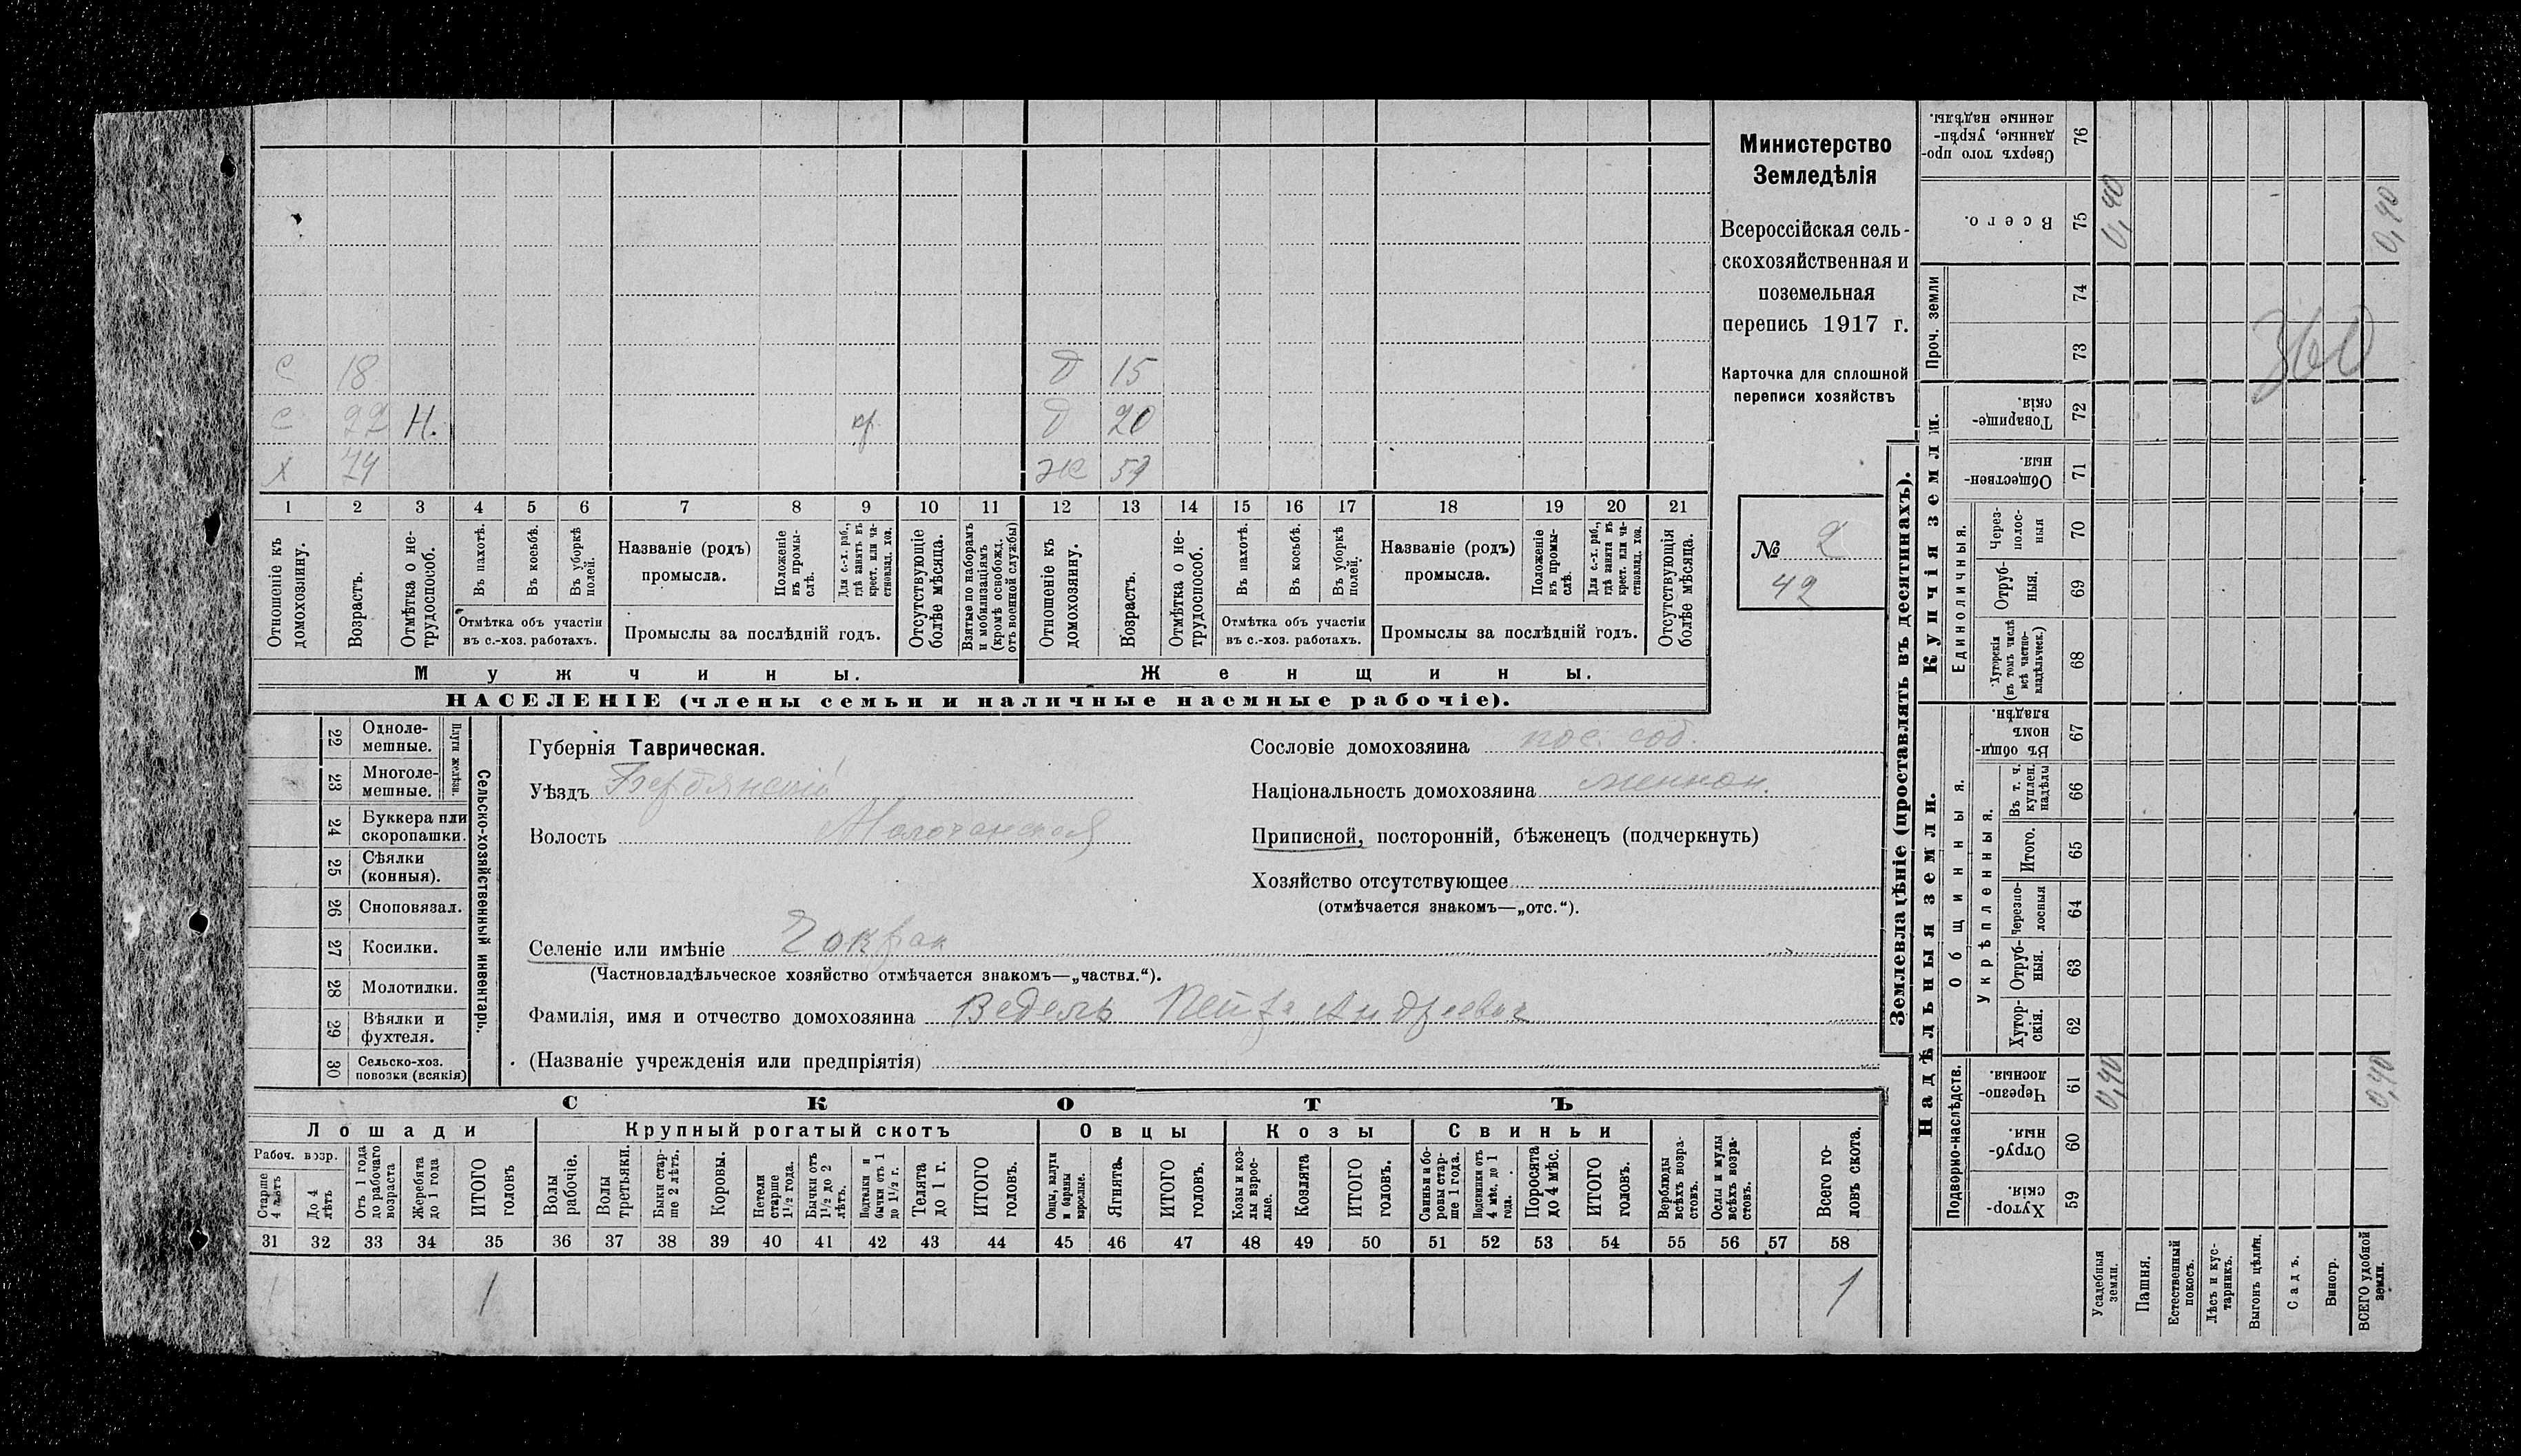 С 18 Д 15
С 22 Н. кр. Д 20
Х 74 Ж 59
1 2 3 4 5 6 7 8 9 10 11 12 13 14 15 16 17 18 19 20 21
Отношеніе къ домохозяину.
Возрастъ.
Отмѣтка о не-
трудоспособ.
Въ пахотѣ.
Въ косьбѣ.
Въ уборкѣ
полей.
Отмѣтка объ участіи
въ с.-хоз. работахъ.
Названіе (родъ)
промысла.
Положеніе
въ промы-
слѣ.
Для с.-х. раб.,
гдѣ занятъ въ
крест. или ча-
стновлад. хоз.
Промыслы за послѣдній годъ.
Отсутствующіе
болѣе мѣсяца.
Взятые по наборамъ
и мобилизаціямъ
(кромѣ освобожд.
отъ военной службы)
Отношеніе къ
домохозяину.
Возрастъ.
Отмѣтка о не-
трудоспособ.
Въ пахотѣ.
Въ косьбѣ.
Въ уборкѣ
полей.
Отмѣтка объ участіи
въ с.-хоз. работахъ.
Названіе (родъ)
промысла.
Положеніе
въ промы-
слѣ.
Для с.-х. раб.,
гдѣ занята въ
крест. или ча-
стновлад. хоз.
Промыслы за послѣдній годъ.
Отсутствующія
болѣе мѣсяца.
Мужчины.
Женщины.
НАСЕЛЕНІЕ (члены семьи и наличные наемные рабочіе).
Министерство
Земледѣлія
Всероссійская сель-
скохозяйственная и
поземельная
перепись 1917 г.
Карточка для сплошной
переписи хозяйствъ
№ 2
42
22 Одноле-
мешные.
23 Многоле-
мешные.
Плуги желѣзн.
24 Буккера или
скоропашки.
25 Сѣялки
(конныя).
26 Сноповязал.
27 Косилки.
28 Молотилки.
29 Вѣялки и
фухтеля.
30 Сельско-хоз.
повозки (всякія)
Сельско-хозяйственный инвентарь.
Губернія Таврическая.
Уѣздъ Бердянскій
Волость Молочанская
Селеніе или имѣніе Чокрак
(Частновладѣльческое хозяйство отмѣчается знакомъ—„частвл.“).
Фамилія, имя и отчество домохозяина Ведель Петр Андреевич
(Названіе учрежденія или предпріятія)
Сословіе домохозяина пос. соб.
Національность домохозяина меннон.
Приписной, посторонній, бѣженецъ (подчеркнуть)
Хозяйство отсутствующее
(отмѣчается знакомъ—„отс.“).
СКОТЪ
Лошади
Крупный рогатый скотъ
Овцы
Козы
Свиньи
Рабоч. возр.
Старше
4 лѣтъ
До 4
лѣтъ
Отъ 1 года
до рабочаго
возраста
Жеребята
до 1 года
ИТОГО
головъ
Волы
рабочіе.
Волы
третьяки.
Быки стар-
ше 2 лѣтъ.
Коровы.
Нетели
старше
1½ года.
Бычки отъ
1½ до 2
лѣтъ.
Подтелки и
бычки отъ 1
до 1½ г.
Телята
до 1 г.
ИТОГО
головъ.
Овцы, валухи
и бараны
взрослые.
Ягнята.
ИТОГО
головъ.
Козы и коз-
лы взрос-
лые.
Козлята
ИТОГО
головъ.
Свиньи и бо-
ровы стар-
ше 1 года.
Подсвинки отъ
4 мѣс. до 1
года.
Поросята
до 4 мѣс.
ИТОГО
головъ.
Верблюды
всѣхъ возра-
стовъ.
Ослы и мулы
всѣхъ возра-
стовъ.
Всего го-
ловъ скота.
31 32 33 34 35 36 37 38 39 40 41 42 43 44 45 46 47 48 49 50 51 52 53 54 55 56 57 58
1 1 1
Землевладѣніе (проставлять въ десятинахъ).
Купчія земли.
Надѣльныя земли.
Сверхъ того про-
данные, укрѣп-
ленные надѣлы.
76
Всего.
75
0,40 0,40
Проч. земли
74
73
360
Товарище-
скія.
72
Обществен-
ныя.
71
Единоличныя.
Через-
полос-
ныя
70
Отруб-
ныя.
69
Хуторскія
(въ томъ числѣ
всѣ частно-
владѣльческ.)
68
Общинныя.
Въ общин-
номъ
владѣн.
67
Укрѣпленныя.
Въ т. ч.
куплен.
надѣлы
66
Итого.
65
Черезпо-
лосныя
64
Отруб-
ныя.
63
Хутор-
скія.
62
Подворно-наслѣдств.
Черезпо-
лосныя.
61
0,40 0,40
Отруб-
ныя.
60
Хутор-
скія.
59
Усадебныя
земли.
Пашня.
Естественный
покосъ.
Лѣсъ и кус-
тарникъ.
Выгонъ цѣлин.
Садъ.
Виногр.
ВСЕГО удобной
земли.